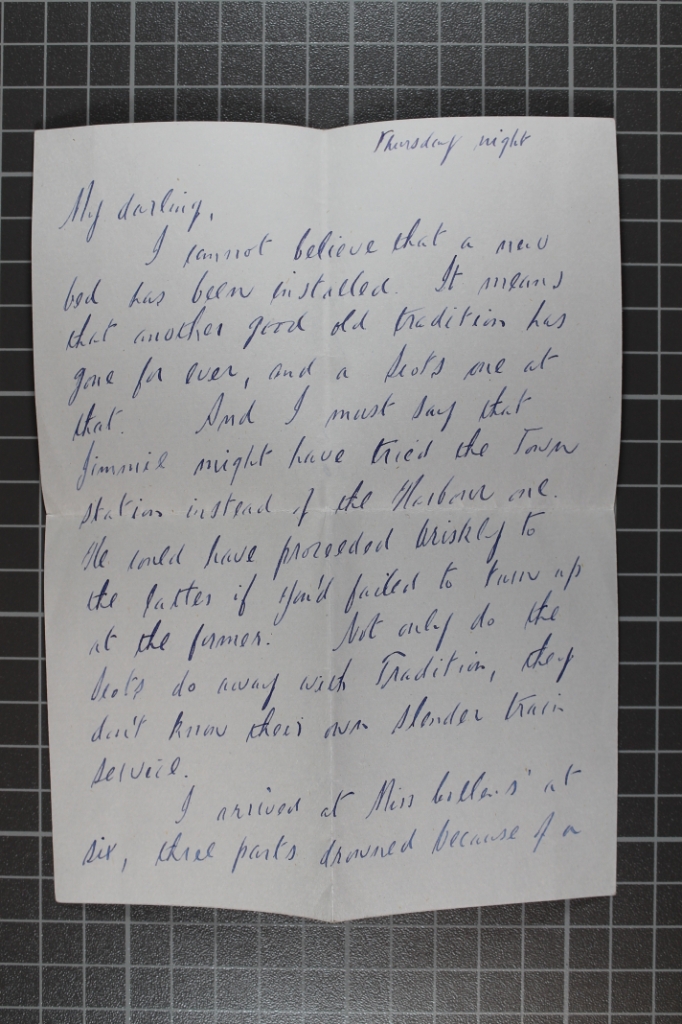 Thursday night
My darling,
I cannot believe that a new
bed has been installed. It means
that another good old tradition has
gone for ever, and a Scots one at
that. And I must say that
Jimmie might have tried the Town
station instead of the Harbour one.
He could have proceeded briskly to
the latter if you'd failed to turn up
at the former. Not only do the
Scots do away with Tradition, they
don't know their own slender train
service.
I arrived at Miss at
six, three parts drowned because of a